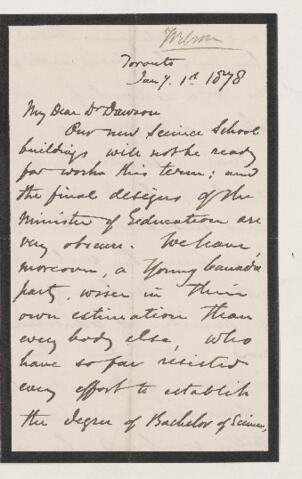 Wilson
Toronto
Jany. 1st 1878
My Dear Dr Dawson
Our new Science School
buildings will not be ready
for work this term; and
the final designs of the
Minister of Education are
very obscure. We have
moreover, a Young Canada
party, wiser in their
own estimation than
every body else, who
have so far resisted
every effort to establish
the degree of Bachelor of Science,